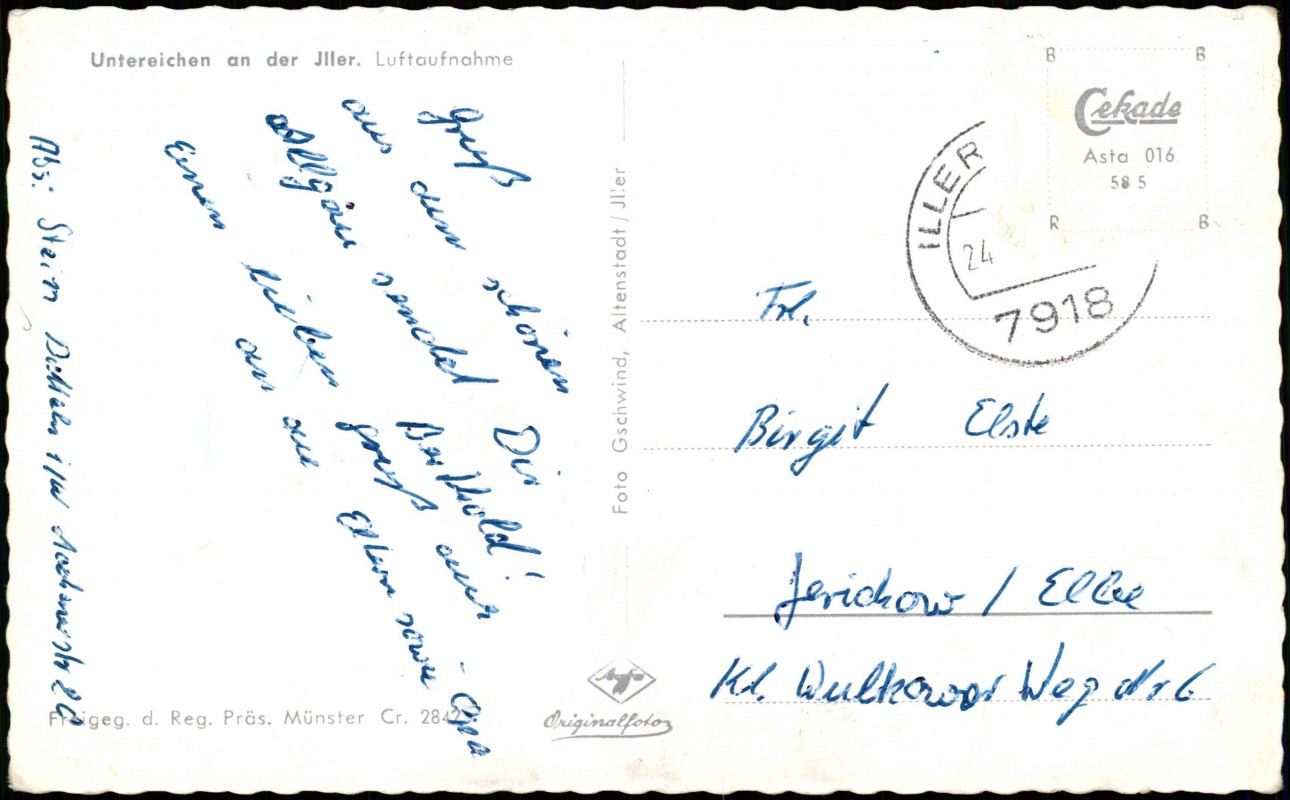 Untereichen an der Jller. Luftaufnahme
Gruß
aus dem schönen
Allgäu sendet Dir
Berthold!
Einen lieben gruß auch
an die Eltern sowie Opa
Abs: Stein
Freigeg. d. Reg. Präs. Münster Cr. 2842
Foto Gschwind, Altenstadt / Jller
Agfa
Originalfoto
B B
Cekade
Asta 016
58 5
R B
ILLER
24
7918
Frl.
Birgit Elste
Jerichow / Elbe
Kl. Wulkower Weg Nr 6